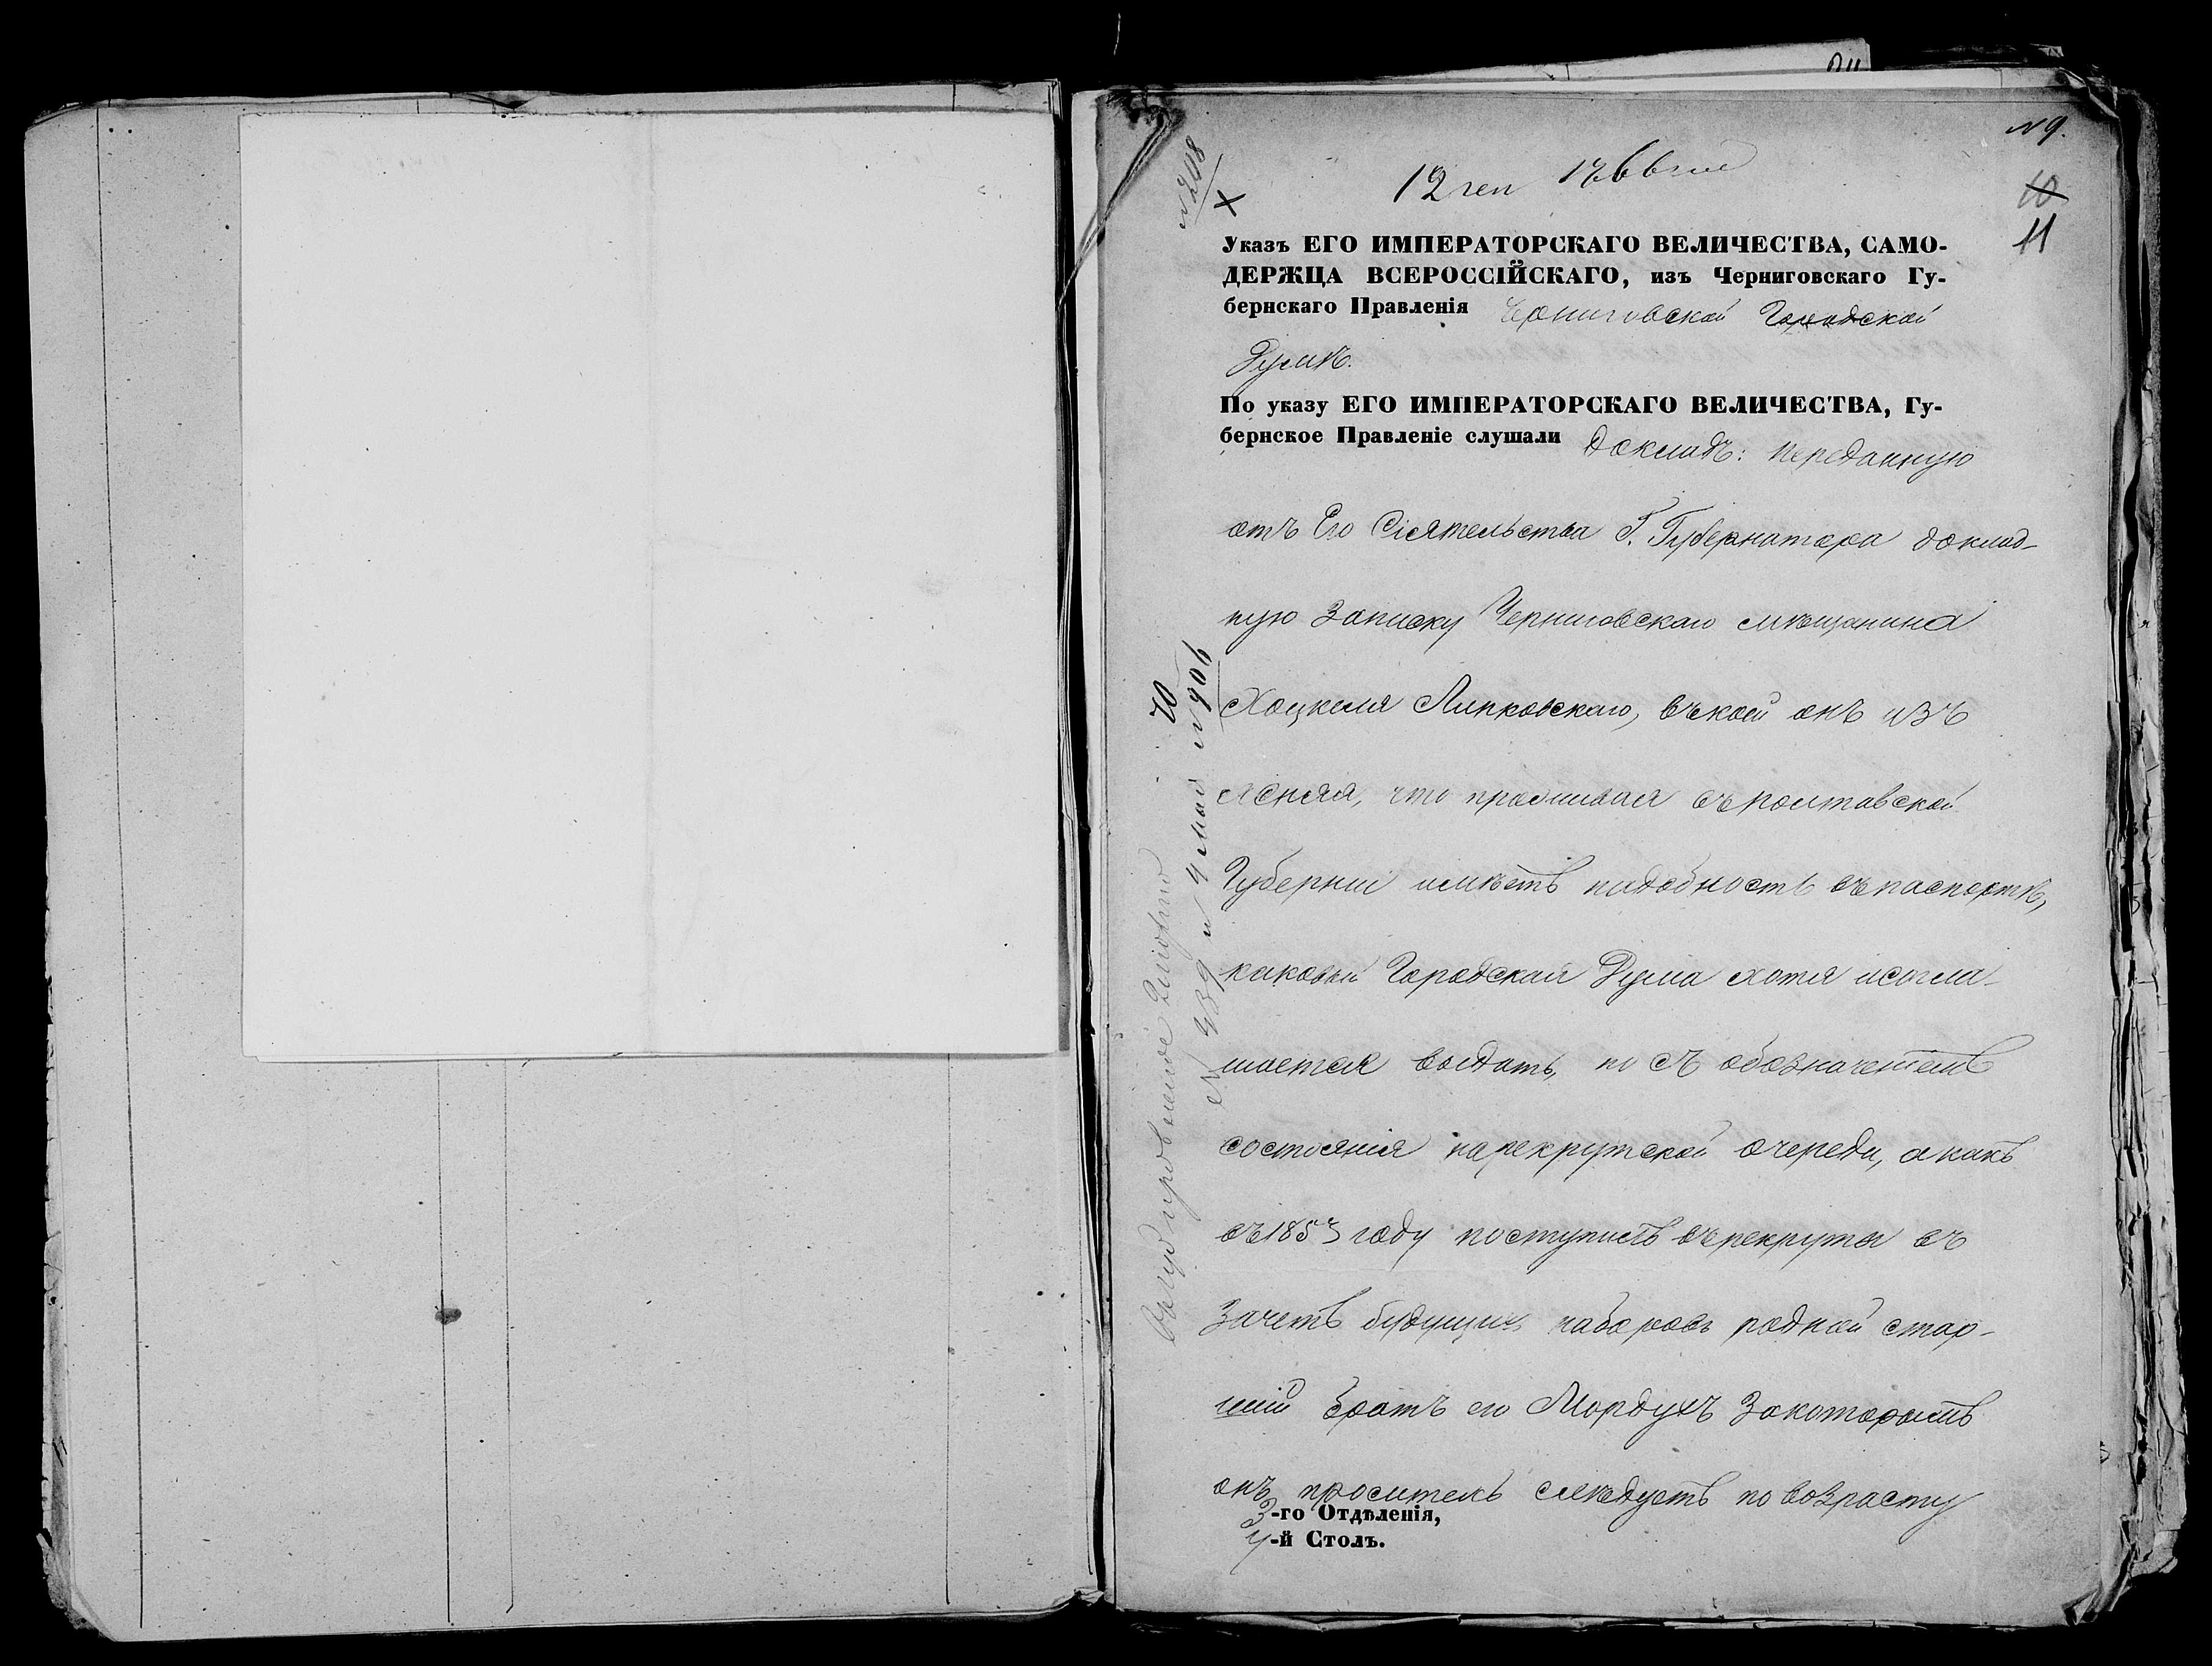 N 9.
12 ген 1866 г
10
11
N 218
Указъ ЕГО ИМПЕРАТОРСКАГО ВЕЛИЧЕСТВА, САМО-
ДЕРЖЦА ВСЕРОССІЙСКАГО, изъ Черниговскаго Гу-
бернскаго Правленія Черниговской Городской
Думѣ.
По указу ЕГО ИМПЕРАТОРСКАГО ВЕЛИЧЕСТВА, Гу-
бернское Правленіе слушали докладъ: переданную
отъ Его Сіятельства Г. Губернатора доклад-
ную записку Черниговскаго мѣщанина
Хацкеля Липковскаго, въ коей онъ изъ
ясняя, что проживая въ Полтавской
Губерніи имѣетъ надобность въ паспортѣ,
каковый Городская Дума хотя и согла-
шается выдать, но съ обозначеніемъ
состоянія на рекрутской очереди, а какъ
въ 1853 году поступилъ въ рекруты въ
зачетъ будущихъ наборовъ родной стар-
шій братъ его Мордухъ за которымъ
онъ проситель слѣдуетъ по возрасту
3-го Отдѣленія,
4-й Столъ.
70
N 439 и 4 мая N 906